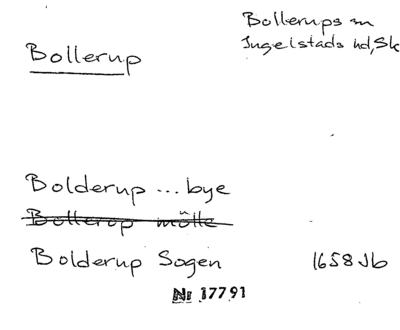 Bollerup
Bollerups sn
Ingelstads hd, Sk
Bolderup ... bye
Bollerup mölle
Bolderup Sogen 1658 Jb
Nr 17791